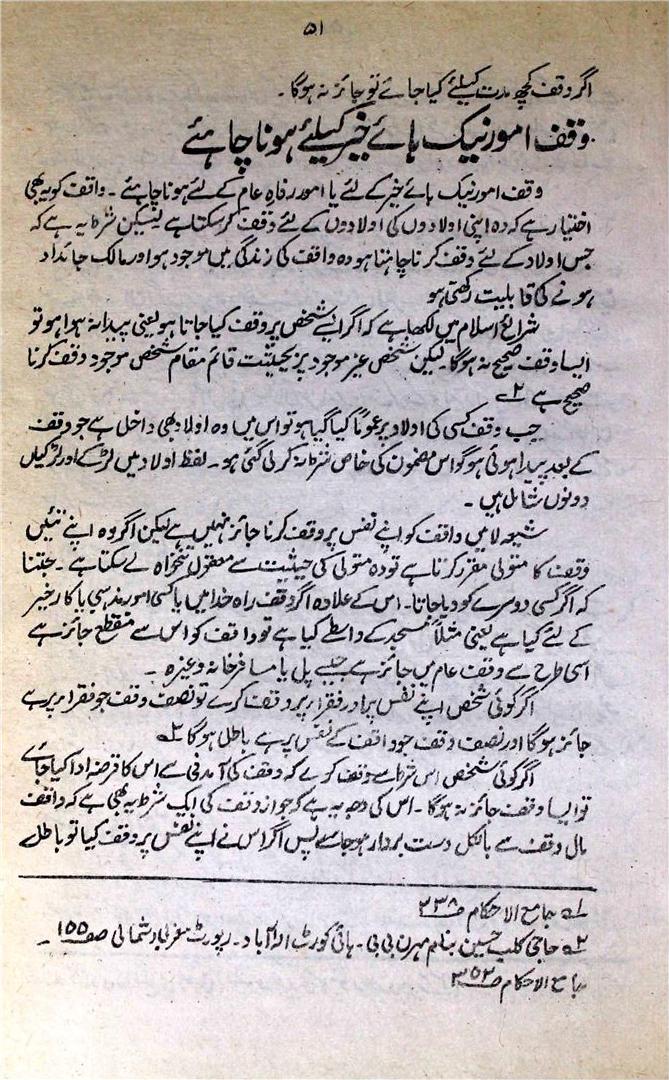 ۵۱
اگر وقف کچھ مدت کیلئے کیا جائے تو جائز نہ ہوگا۔
وقف امور نیک ہائے خیر کیلئے ہونا چاہئے
وقف امور نیک ہائے خیر کے لئے یا امور رفاہ عام کے لئے ہونا چاہئے۔ واقف کو یہ بھی
اختیار ہے کہ وہ اپنی اولادوں کی اولادوں کے لئے وقف کر سکتا ہے لیکن شرط یہ ہے کہ
جس اولاد کے لئے وقف کرنا چاہتا ہو وہ واقف کی زندگی میں موجود ہو اور مالک جائداد
ہونے کی قابلیت رکھتی ہو
شرائع اسلام میں لکھا ہے کہ اگر ایسے شخص پر وقف کیا جاتا ہو یعنی پیدا نہ ہوا ہو تو
ایسا وقف صحیح نہ ہوگا۔ لیکن شخص غیر موجود پر بحیثیت قائم مقام شخص موجود وقف کرنا
صحیح ہے ۲؎
جب وقف کسی کی اولاد پر عموماً کیا گیا ہو تو اس میں وہ اولاد بھی داخل ہے جو وقف
کے بعد پیدا ہوئی ہو گو اس مضمون کی خاص شرط نہ کر لی گئی ہو۔ لفظ اولاد میں لڑکے اور لڑکیاں
دونوں شامل ہیں۔
شیعہ لا میں واقف کو اپنے نفس پر وقف کرنا جائز نہیں ہے لیکن اگر وہ اپنے تئیں
وقف کا متولی مقرر کرتا ہے تو وہ متولی کی حیثیت سے معقول تنخواہ لے سکتا ہے۔ جتنا
کہ اگر کسی دوسرے کو دیا جاتا۔ اس کے علاوہ اگر وقف راہ خدا میں یا کسی امور مذہبی یا کار خیر
کے لئے کیا ہے یعنی مثلاً مسجد کے واسطے کیا ہے تو واقف کو اس سے منقطع جائز ہے
اسی طرح سے وقف عام میں جائز ہے جیسے پل یا مسافر خانہ وغیرہ۔
اگر کوئی شخص اپنے نفس پر اور فقراء پر وقف کرے تو نصف وقف جو فقراء پر ہے
جائز ہوگا اور نصف وقف جو واقف کے نفس پر ہے باطل ہوگا ۳؎
اگر کوئی شخص اس شرط سے وقف کرے کہ وقف کی آمدنی سے اس کا قرضہ ادا کیا جائے
تو ایسا وقف جائز نہ ہوگا۔ اس کی وجہ یہ ہے کہ جواز وقف کی ایک شرط یہ بھی ہے کہ واقف
مال وقف سے بالکل دست بردار ہو جائے پس اگر اس نے اپنے نفس پر وقف کیا تو باطل ہے
۱؎ جامع الاحکام صـ ۲۳۸
۲؎ حاجی کلب حسین بنام مہرن بی بی۔ ہائی کورٹ الہ آباد۔ رپورٹ مغربی و شمالی صـ ۱۵۵۔
جامع الاحکام صـ ۳۵۲